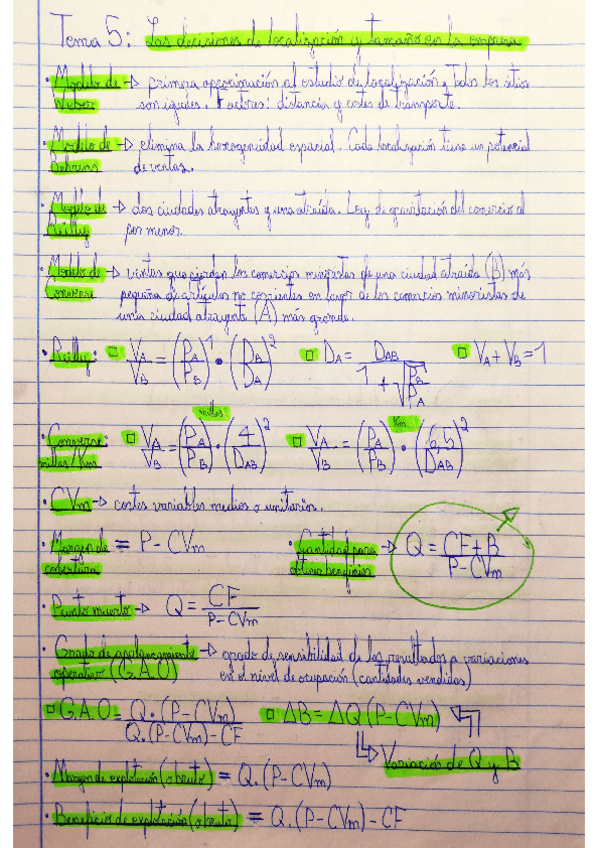 Tema 5: Las decisiones de localización y tamaño en la empresa
· Modelo de Weber → primera aproximación al estudio de localización, todos los sitios
son iguales. Factores: distancia y costes de transporte.
· Modelo de Behrens → elimina la homogeneidad espacial. Cada localización tiene un potencial
de ventas.
· Modelo de Reilly → dos ciudades atrayentes y una atraída. Ley de gravitación del comercio al
por menor.
· Modelo de Converse → ventas que pierden los comercios minoristas de una ciudad atraída (B) más
pequeña de artículos no corrientes en favor de los comercios minoristas de
una ciudad atrayente (A) más grande.
· Reilly: □ VA/VB = (PA/PB)^1 · (DB/DA)^2 □ DA = DAB/(1+√(PB/PA)) □ VA + VB = 1
millas Km
· Converse: millas/Km □ VA/VB = (PA/PB) · (4/DAB)^2 □ VA/VB = (PA/PB) · (6,5/DAB)^2
· CVm → costes variables medios o unitarios.
· Margen de cobertura = P - CVm · Cantidad para obtener beneficios → Q = (CF+B)/(P-CVm)
· Punto muerto → Q = CF/(P-CVm)
· Grado de apalancamiento → grado de sensibilidad de los resultados a variaciones
operativo (G.A.O) en el nivel de ocupación (cantidades vendidas)
□ G.A.O = Q·(P-CVm)/(Q·(P-CVm)-CF) □ ΔB = ΔQ (P-CVm)
↳ Variación de Q y B
· Margen de explotación (o bruto) = Q.(P-CVm)
· Beneficio de explotación (o bruto) = Q.(P-CVm) - CF